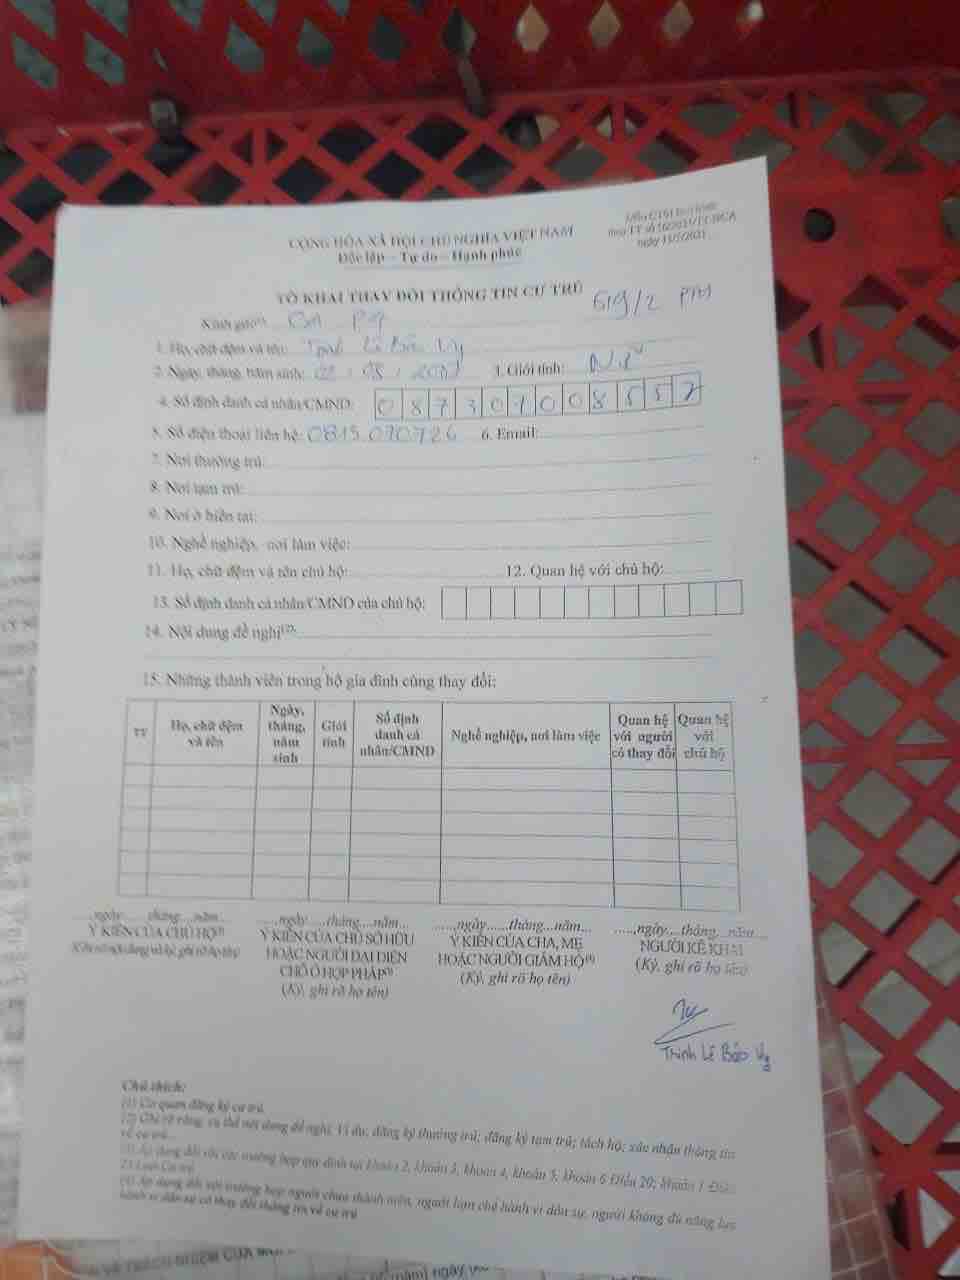 CỘNG HÒA XÃ HỘI CHỦ NGHĨA VIỆT NAM
Độc lập – Tự do – Hạnh phúc
ngày 15/5/2021
TỜ KHAI THAY ĐỔI THÔNG TIN CƯ TRÚ
619/2 PTH
Kính gửi⁽¹⁾: CA
1. Họ, chữ đệm và tên: Lê Bảo Vy
2. Ngày, tháng, năm sinh: 3. Giới tính: Nữ
4. Số định danh cá nhân/CMND: 0 8 7 3 0 7 0 0 8 5 5 7
5. Số điện thoại liên hệ: 0815 070726 6. Email:
7. Nơi thường trú:
8. Nơi tạm trú:
9. Nơi ở hiện tại:
10. Nghề nghiệp, nơi làm việc:
11. Họ, chữ đệm và tên chủ hộ: 12. Quan hệ với chủ hộ:
13. Số định danh cá nhân/CMND của chủ hộ:
14. Nội dung đề nghị⁽²⁾:
15. Những thành viên trong hộ gia đình cùng thay đổi:
TT Họ, chữ đệm và tên Ngày, tháng, năm sinh Giới tính Số định danh cá nhân/CMND Nghề nghiệp, nơi làm việc Quan hệ với người có thay đổi Quan hệ với chủ hộ
.....,ngày.....tháng....năm.... .....,ngày....tháng...năm... .....,ngày.....tháng...năm... .....,ngày....tháng...năm...
Ý KIẾN CỦA CHỦ HỘ⁽³⁾ Ý KIẾN CỦA CHỦ SỞ HỮU HOẶC NGƯỜI ĐẠI DIỆN CHỖ Ở HỢP PHÁP⁽³⁾ Ý KIẾN CỦA CHA, MẸ HOẶC NGƯỜI GIÁM HỘ⁽⁴⁾ NGƯỜI KÊ KHAI
(Ký, ghi rõ họ tên) (Ký, ghi rõ họ tên) (Ký, ghi rõ họ tên)
Trịnh Lê Bảo Vy
Chú thích:
(1) Cơ quan đăng ký cư trú.
(2) Ghi rõ ràng, cụ thể nội dung đề nghị. Ví dụ: đăng ký thường trú; đăng ký tạm trú; tách hộ; xác nhận thông tin
về cư trú...
(3) Áp dụng đối với các trường hợp quy định tại khoản 2, khoản 3, khoản 4, khoản 5, khoản 6 Điều 20; khoản 1 Điều
25 Luật Cư trú
(4) Áp dụng đối với trường hợp người chưa thành niên, người hạn chế hành vi dân sự, người không đủ năng lực
hành vi dân sự có thay đổi thông tin về cư trú